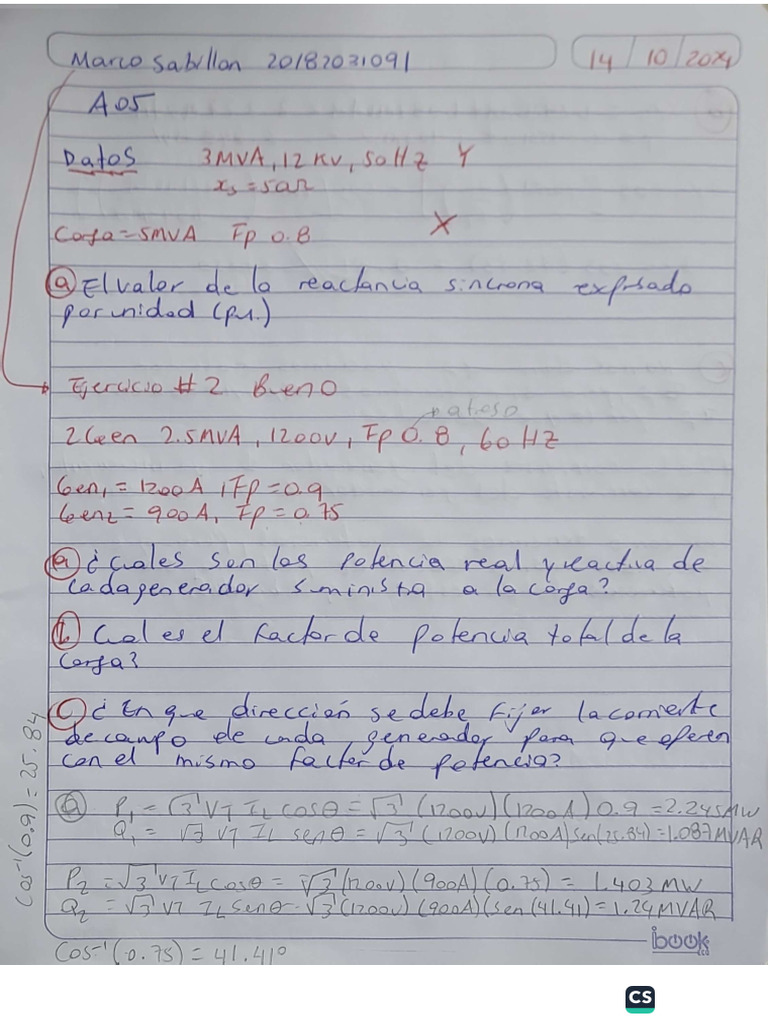 Marco Sabillon 20182031091 14/10/2024
A05
Datos 3MVA, 12 KV, 50 HZ Y
xs = 50Ω
Carga = 5MVA Fp 0.8 X
a) El valor de la reactancia sincrona expresado
por unidad (p.u.)
Ejercicio # 2 Bueno
2 Gen 2.5MVA, 1200V, Fp 0.8, 60 HZ
Gen1 = 1200 A, Fp = 0.9
Gen2 = 900A, Fp = 0.75
a) ¿Cuales son las potencia real y reactiva de
cada generador suministra a la carga?
b) Cual es el factor de potencia total de la
carga?
c) ¿En que dirección se debe fijar la corriente
de campo de cada generador para que operen
con el mismo factor de potencia?
cos⁻¹(0.9) = 25.84
a) P1 = √3 VT IL cosθ = √3 (1200V)(1200A) 0.9 = 2.245MW
Q1 = √3 VT IL senθ = √3 (1200V)(1200A) sen(25.84) = 1.087MVAR
P2 = √3 VT IL cosθ = √3 (1200V)(900A)(0.75) = 1.403 MW
Q2 = √3 VT IL senθ = √3 (1200V)(900A)(sen(41.41) = 1.24MVAR
cos⁻¹(0.75) = 41.41°
ibook
CS